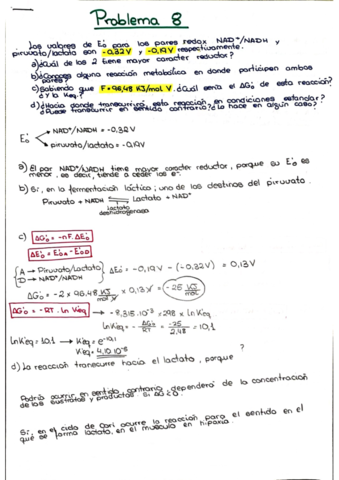 Problema 8
Los valores de E'o para los pares redox NAD+/NADH y
piruvato/lactato son -0,32V y -0,19V respectivamente.
a) ¿Cuál de los 2 tiene mayor carácter reductor?
b) ¿Conoces alguna reacción metabólica en donde participen ambos
pares?
c) Sabiendo que F=96,48 KJ/mol.V. ¿Cuál sería el ΔG'o de esta reacción?
¿y la Keq?
d) ¿Hacia donde transcurrirá esta reacción en condiciones estándar?
¿Puede transcurrir en sentido contrario? ¿Lo hace en algún caso?
E'o
NAD+/NADH = -0,32V
piruvato/lactato = -0,19V
a) El par NAD+/NADH tiene mayor carácter reductor, porque su E'o es
menor, es decir, tiende a ceder los e-.
b) Sí, en la fermentación láctica; uno de los destinos del piruvato.
Piruvato + NADH Lactato + NAD+
Lactato
deshidrogenasa
c) ΔG'o = -nF.ΔE'o
ΔE'o = E'oA - E'oD
A → Piruvato/Lactato
D → NAD+/NADH
ΔE'o = -0,19V - (-0,32V) = 0,13V
ΔG'o = -2 x 96,48 KJ/mol.V x 0,13V = -25 KJ/mol
ΔG'o = -RT.Ln K'eq → -8,315.10-3 x 298 x Ln Keq
Ln Keq = - ΔG'o/RT = -25/2,48 = 10,1
Ln K'eq = 10,1 → K'eq = e-10,1
K'eq = 4.10-5
d) La reacción transcurre hacia el lactato, porque ?
Podría ocurrir en sentido contrario, dependerá de la concentración
de los sustratos y productos si
Sí, en el ciclo de Cori ocurre la reacción para el sentido en el
que se forma lactato, en el músculo en hipoxia.